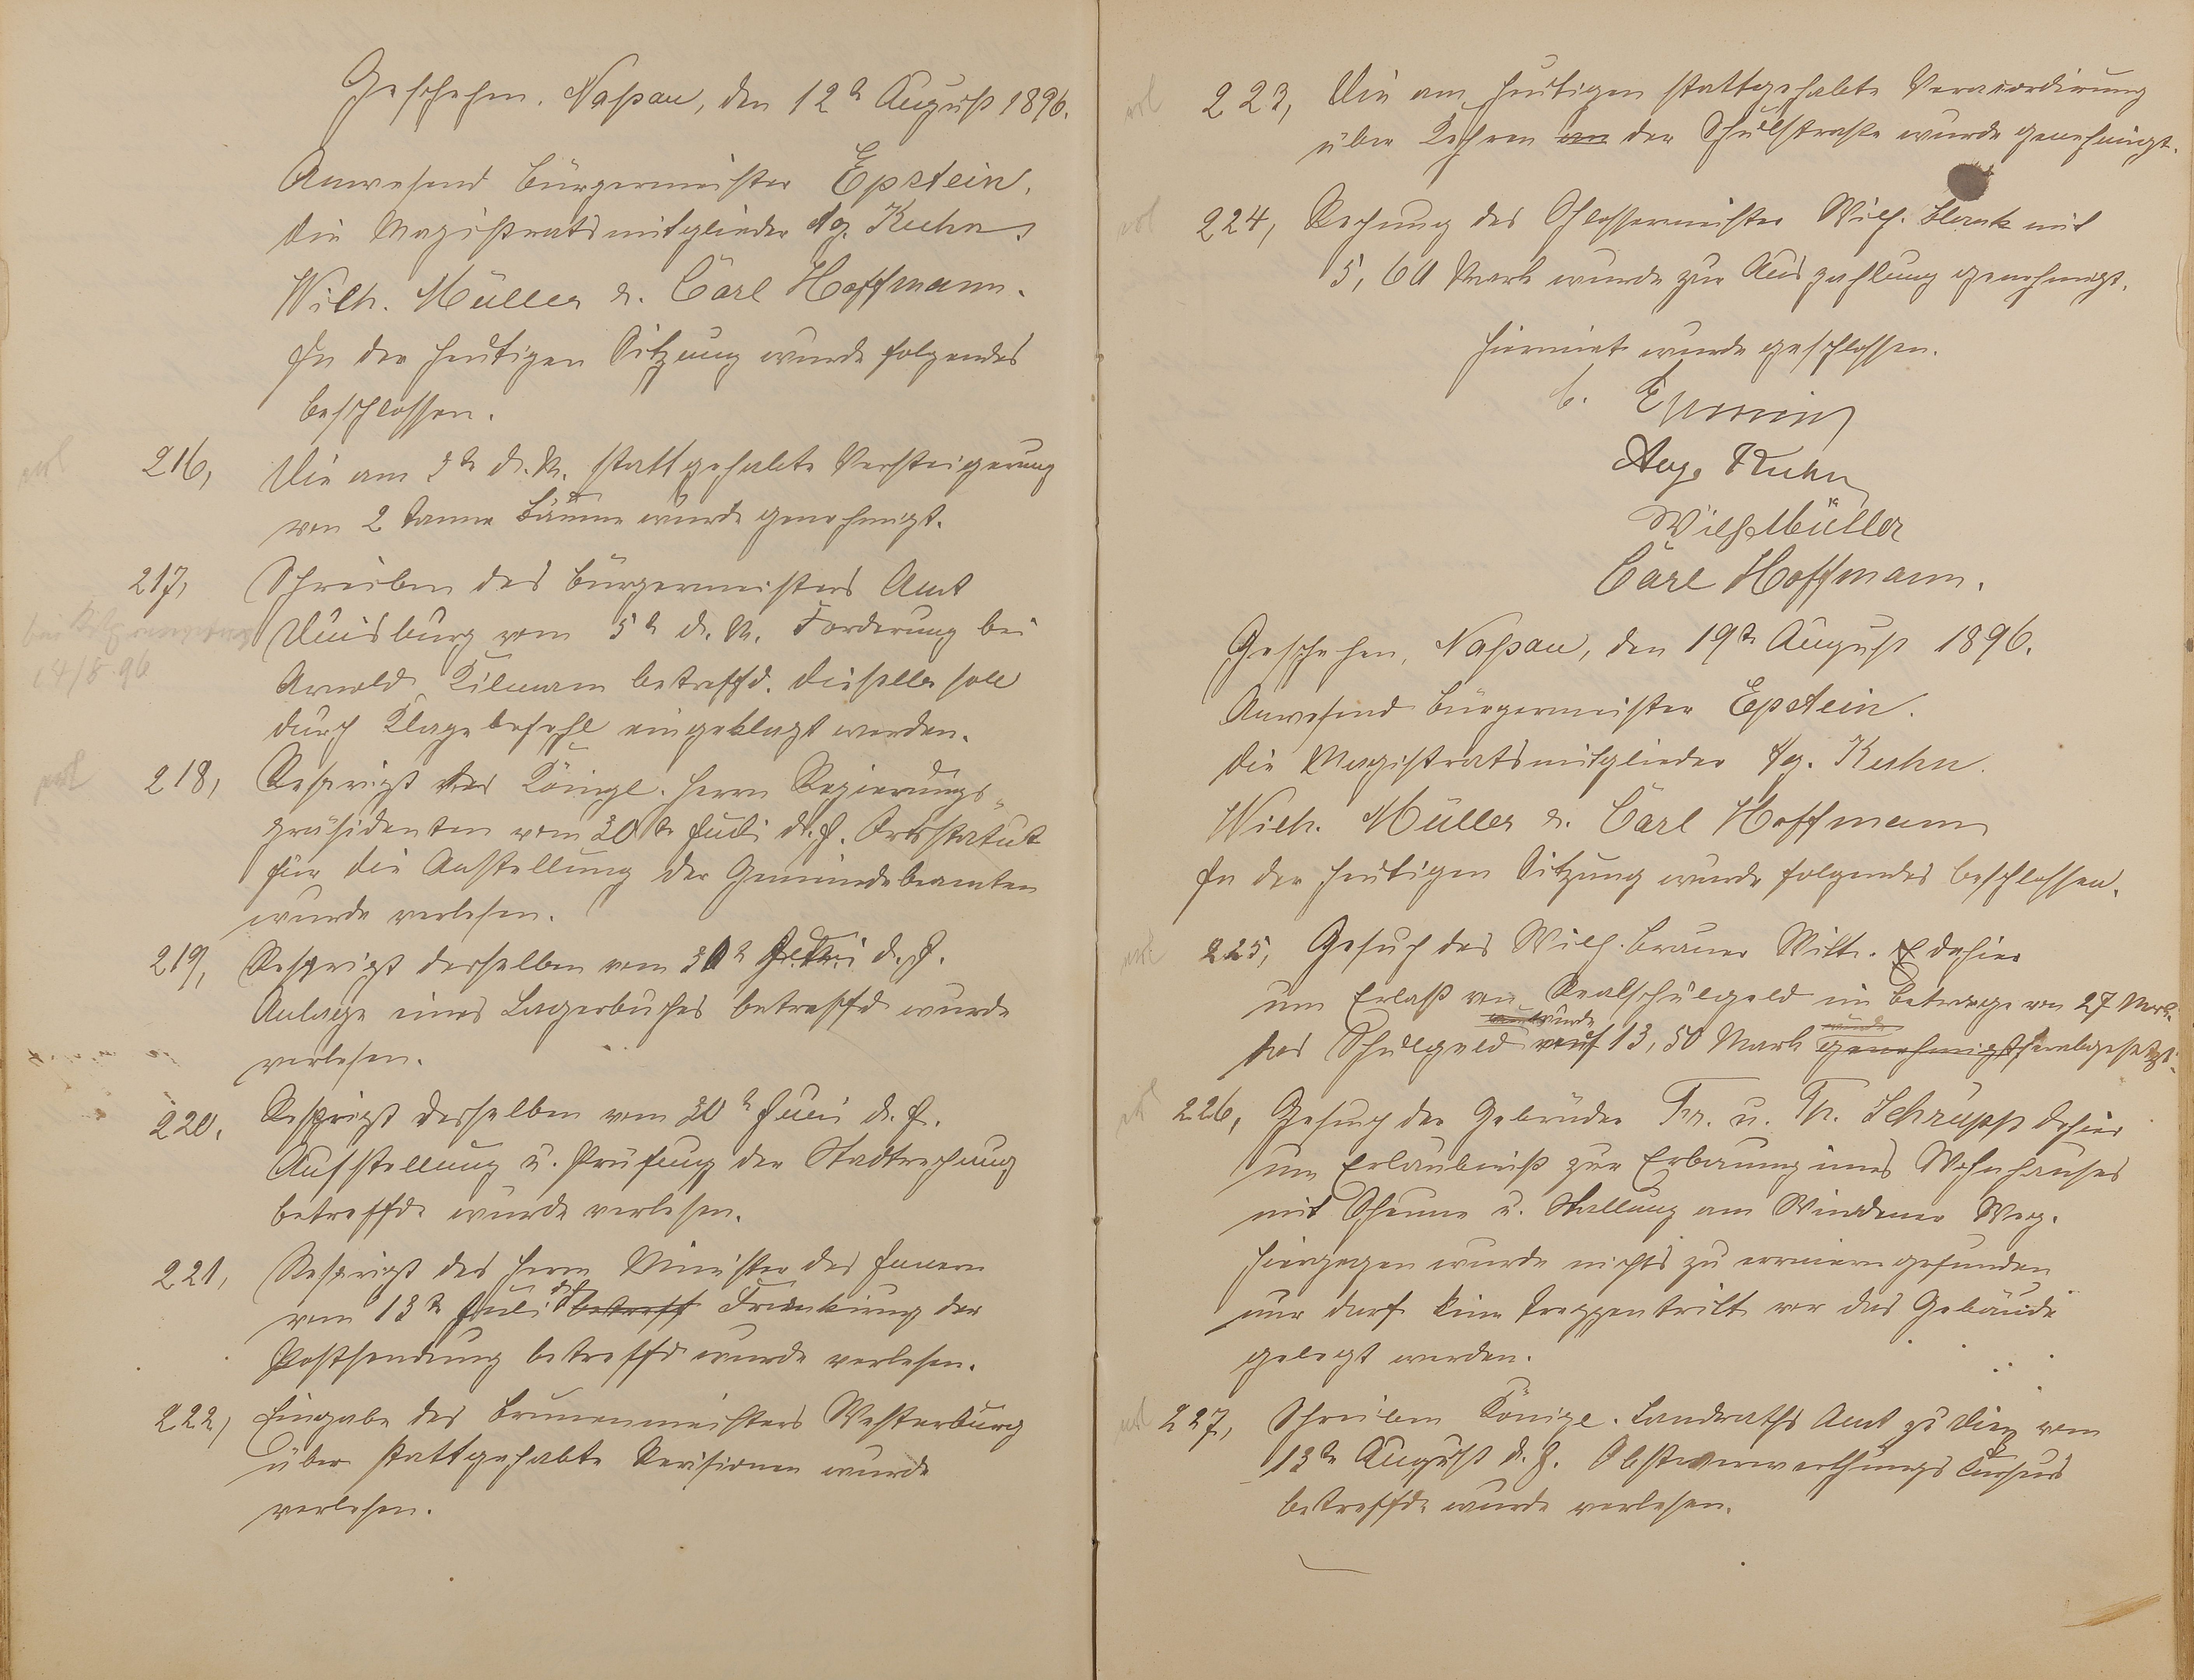 Geschehen. Naßau, den 12t August 1896.
Anwesend Bürgermeister Epstein.
die Magistratsmitglieder Ag. Kuhn,
Wilh. Müller u. Carl Hoffmann.
In der heutigen Sitzung wurde folgendes
beschlossen.
216, Die am 3t d. M. stattgehabte Versteigerung
von 2 Tanne Bäume wurde genehmigt.
217, Schreiben des Bürgermeisters Amt
Duisburg vom 5t d. M. Forderung bei
Arnold betreffd. dieselbe soll
durch Klagebefehl eingeklagt werden.
14/8 96
218, Rescript des Königl. Herrn Regierungs-
präsidenten vom 30t Juli d. J. Ortsstatut
für die Anstellung der Gemeindebeamten
wurde verlesen.
219, Rescript desselben vom d. J.
Anlage eines Lagerbuches betreffd wurde
verlesen.
220. Rescript desselben vom 30t Juni d. J.
Aufstellung u. Prüfung der Stadtrechnung
betreffd. wurde verlesen.
221, Rescript des Herrn Minister des Innern
vom 13t Juli betreff Frankirung der
Postsendung betreffd wurde verlesen.
222, Eingabe des Brunnenmeisters Westerburg
über stattgehabte Revisionen wurde
verlesen.
223, Die am heutigen stattgehabte Veraccordirung
über Kehren der Schulstraße wurde genehmigt.
224, Rechnung des Schlossermeister Wilh. mit
5,60 Mark wurde zur Auszahlung genehmigt.
Hiermit wurde geschlossen.
Epstein
Aug. Kuhn
Wilh Müller
Carl Hoffmann.
Geschehen, Naßau, den 19t August 1896.
Anwesend Bürgermeister Epstein.
die Magistratsmitglieder Ag. Kuhn.
Wilh. Müller u. Carl Hoffmann
In der heutigen Sitzung wurde folgendes beschlossen.
225, Gesuch des Wilh. Brauer Wittw. dahier
um Erlaß von Realschulgeld im Betrage von 27 Mark.
wurde wurde
das Schulgeld auf 13,50 Mark genehmigt herabgesetzt.
226, Gesuch der Gebrüder Fr. u. Th. Schrupp dahier
um Erlaubniß zur Erbauung eines Wohnhauses
mit Scheune u. Stallung am Windener Weg.
Hiergegen wurde nichts zu erinnern gefunden
nur darf keine Treppentritt vor das Gebäude
gelegt werden.
227, Schreiben Königl. Landraths Amt zu Diez vom
13t August d. J. Obstverwerthungs Cursus
betreffd. wurde verlesen.